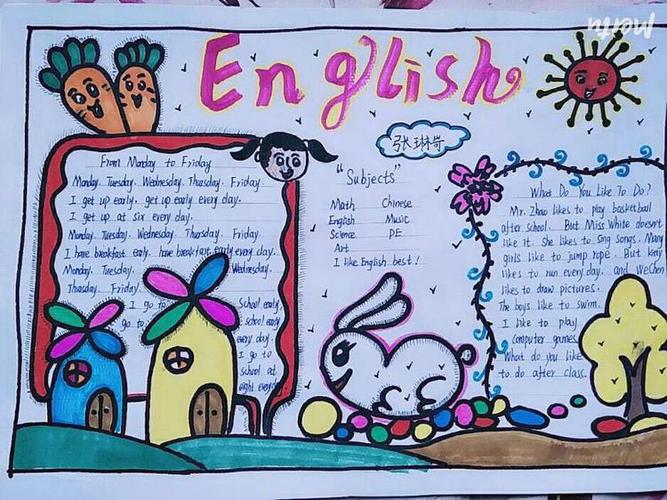 English
张琳苛
From Monday to Friday
Monday. Tuesday. Wednesday. Thursday. Friday
I get up early, get up early every day.
I get up at six every day.
Monday. Tuesday. Wednesday. Thursday. Friday
I have breakfast early. have breakfast early every day.
Monday. Tuesday. Wednesday.
Thursday. Friday.
I go to School early
go to school early
every day
I go to
school at
eight every day
"Subjects"
Math Chinese
English Music
Science PE
Art
I like English best!
What Do You Like To Do?
Mr. Zhao likes to play basketball
after school. But Miss White doesn't
like it. She likes to sing songs. Many
girls like to jump rope. But Kerry
likes to run every day. and WeChen
likes to draw pictures.
The boys like to swim.
I like to play
computer games
What do you like
to do after class.